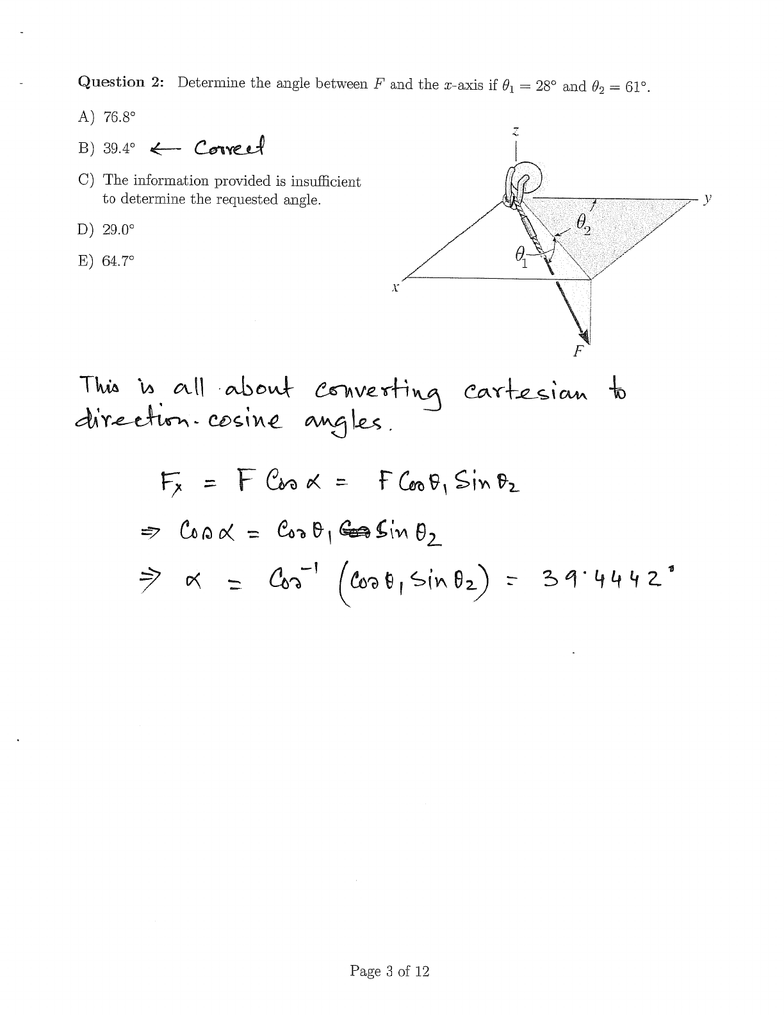 Question 2: Determine the angle between F and the x-axis if θ₁ = 28° and θ₂ = 61°.
A) 76.8°
B) 39.4° ← Correct
C) The information provided is insufficient
to determine the requested angle.
D) 29.0°
E) 64.7°
z
y
θ₂
θ₁
x
F
This is all about converting cartesian to
direction-cosine angles.
Fx = F Cos α = F Cos θ₁ Sin θ₂
⇒ Cos α = Cos θ₁ Sin θ₂
⇒ α = Cos⁻¹ (Cos θ₁ Sin θ₂) = 39.4442°
Page 3 of 12